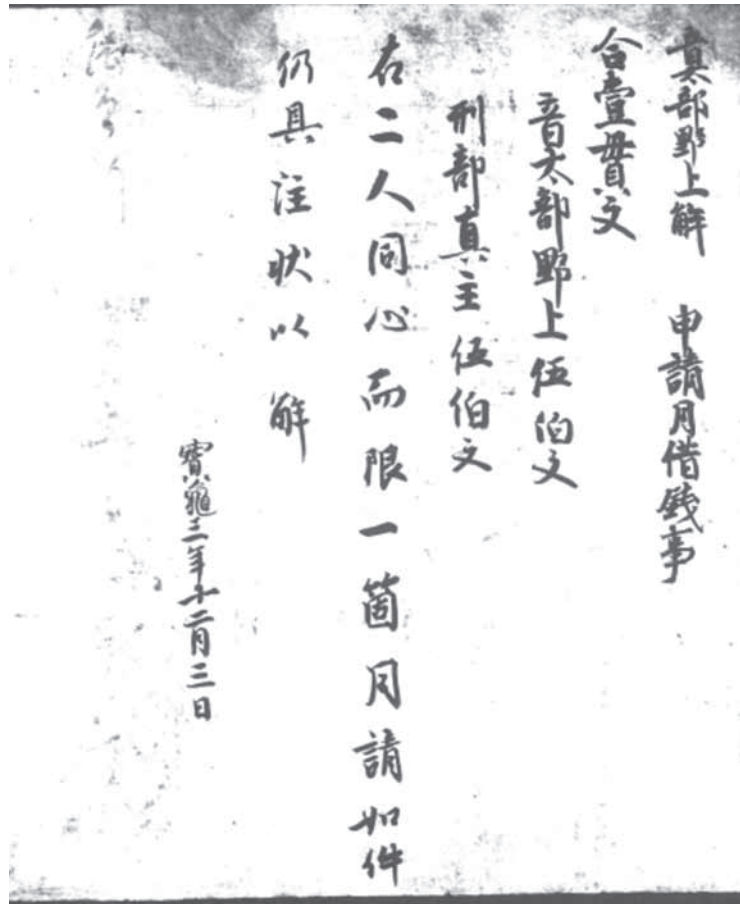 音太部野上解　申請月借錢事
合壹貫文
音太部野上伍伯文
刑部真主伍伯文
右二人同心而限一箇月請如件
仍具注状以解
寶龜三年十二月三日